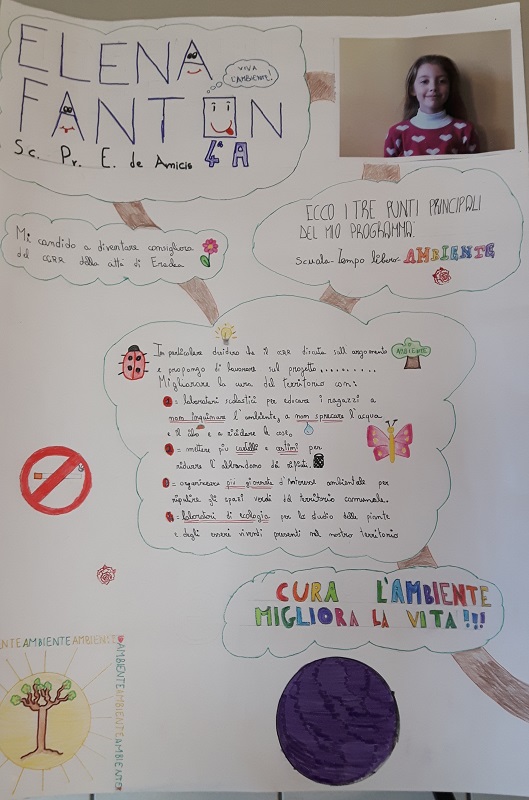 ELENA
VIVA
L'AMBIENTE!
FANTON
Sc. Pr. E. de Amicis 4ª A
Mi candido a diventare consigliera
del CCRR della città di Eraclea
ECCO I TRE PUNTI PRINCIPALI
DEL MIO PROGRAMMA:
scuola-Tempo libero-AMBIENTE
In particolare desidero che il CCRR discuta sull argomento AMBIENTE
e propongo di lavorare sul progetto..........
Migliorare la cura del territorio con:
1= laboratori scolastici per educare i ragazzi a
non inquinare l'ambiente, a non sprecare l'acqua
e il cibo e a riciclare le cose,
2= mettere più cartelli e cestini per
ridurre l'abbandono dei rifiuti.
3= organizzare più giornate d'interesse ambientale per
ripulire gli spazi verdi del territorio comunale.
4= laboratori di ecologia per lo studio delle piante
e degli esseri viventi presenti nel nostro territorio
CURA L'AMBIENTE
MIGLIORA LA VITA!!!
ENTE AMBIENTE AMBIENTE
AMBIENTE AMBIENTE AMBIENTE